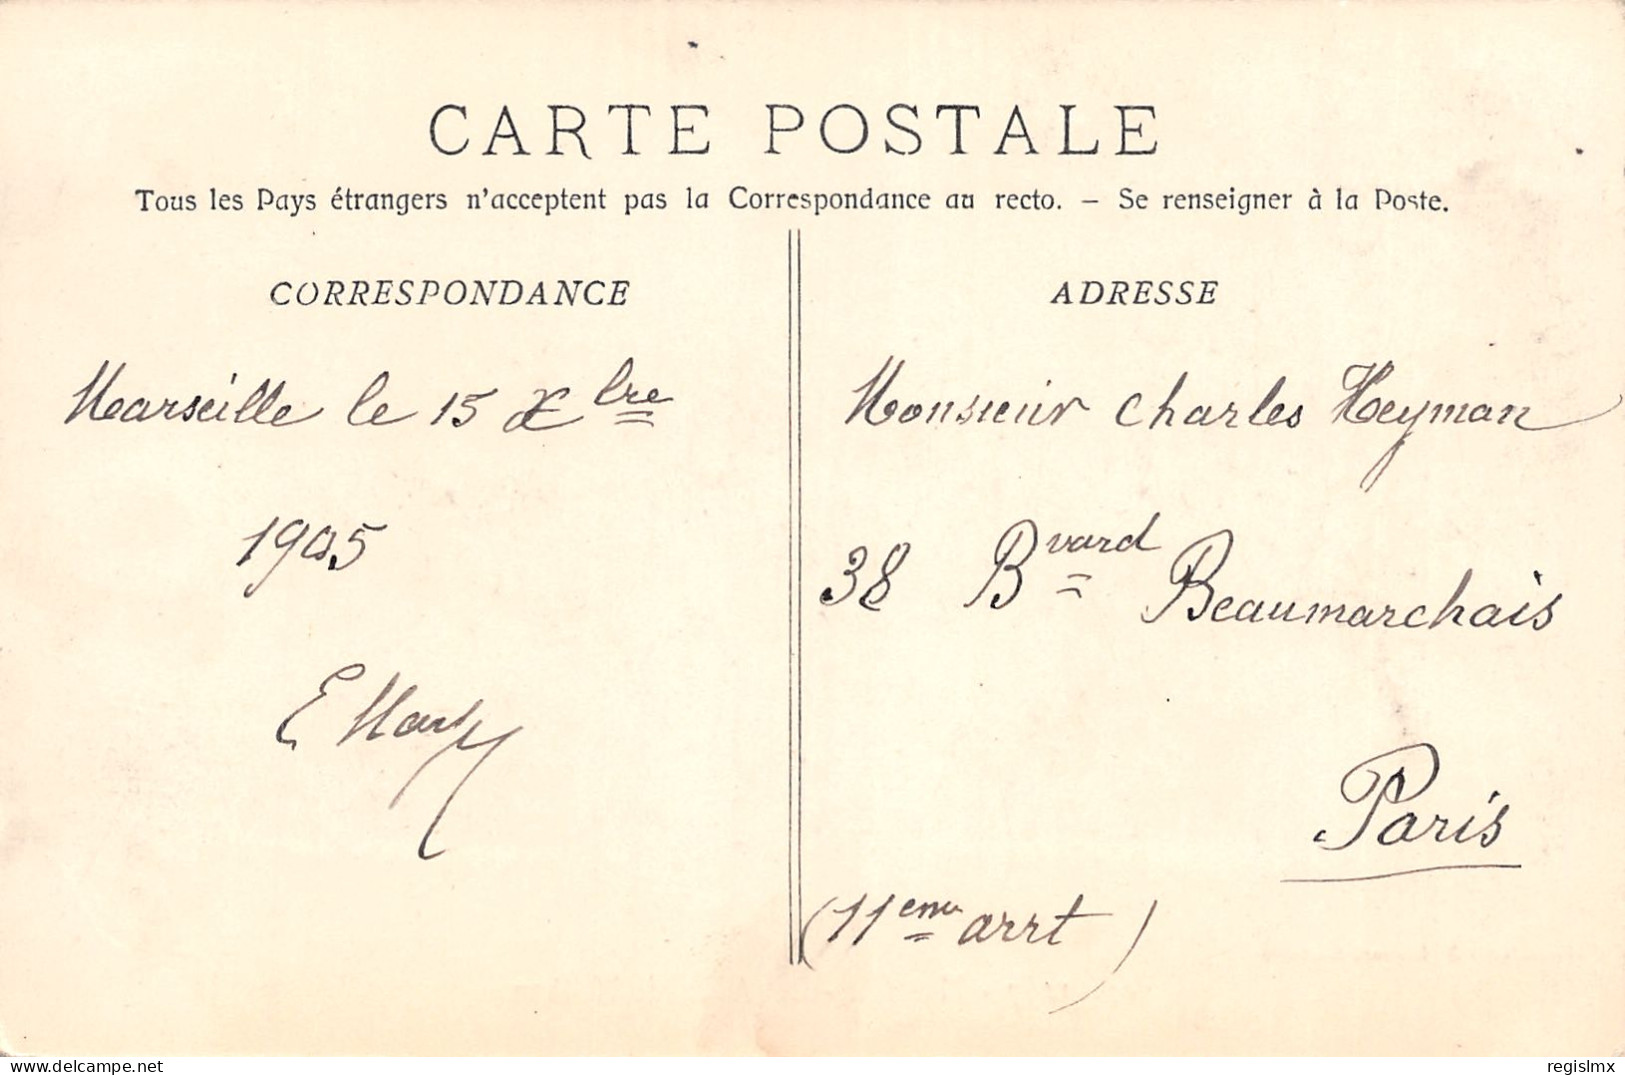 CARTE POSTALE
Tous les Pays étrangers n'acceptent pas la Correspondance au recto. – Se renseigner à la Poste.
CORRESPONDANCE
Marseille le 15 Xbre
1905
ADRESSE
Monsieur Charles Heyman
38 Bvard Beaumarchais
Paris
(11eme arrt)
delcampe.net
regislmx